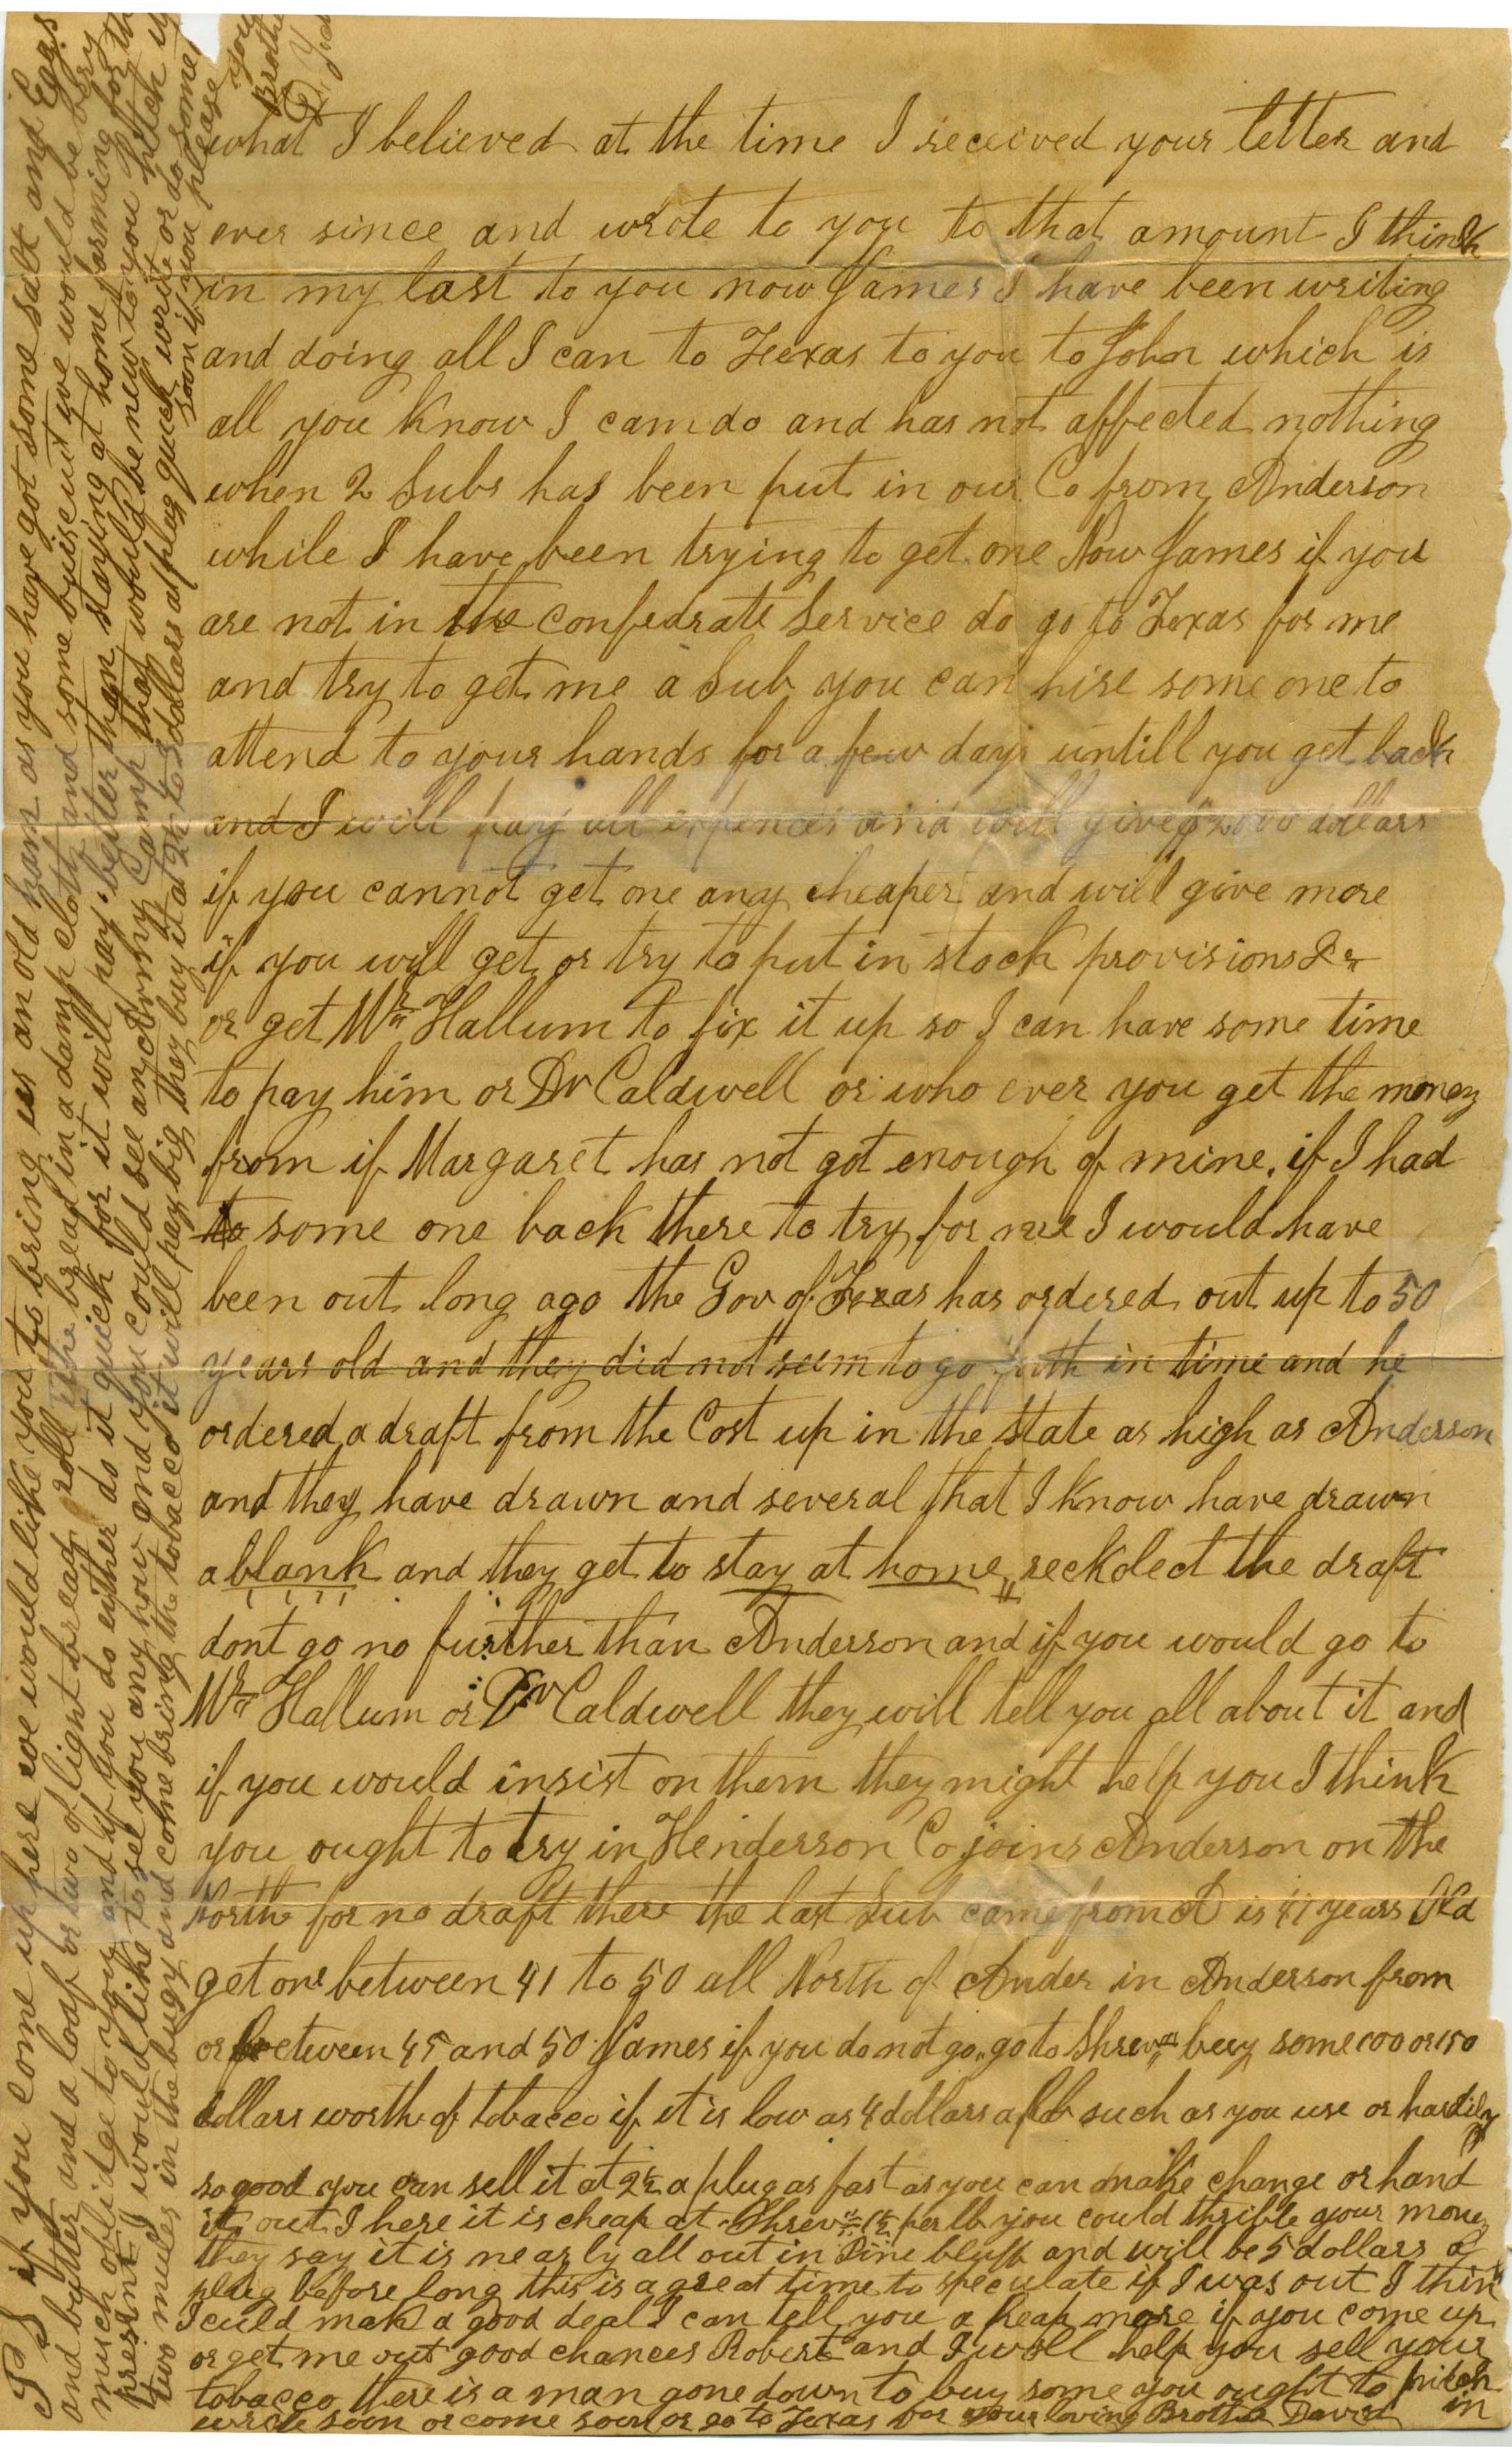 what I believed at the time I received your letter and
ever since and wrote to you to that amount I think
in my last to you now James I have been writing
and doing all I can to Texas to you to John which is
all you know I can do and has not affected nothing
when 2 Subs has been put in our Co from Anderson
while I have been trying to get one Now James if you
are not in the Confedrate Service do go to Texas for me
and try to get me a Sub you can hire some one to
attend to your hands for a few days untill you get back
and I will pay all expences and will give $2000 dollars
if you cannot get one any cheaper and will give more
if you will get or try to put in stock provisions &c
or get Mr Hallum to fix it up so I can have some time
to pay him or Dr Caldwell or who ever you get the money
from if Margaret has not got enough of mine, if I had
some one back there to try for me I would have
been out long ago the Gov of Texas has ordered out up to 50
years old and they did not seem to go forth in time and he
ordered a draft from the Cost up in the state as high as Anderson
and they have drawn and several that I know have drawn
a blank and they get to stay at home, reckolect the draft
dont go no further than Anderson and if you would go to
Mr Hallum or Dr Caldwell they will tell you all about it and
if you would insist on them they might help you I think
you ought to try in Henderson Co joins Anderson on the
North for no draft there the last Sub came from A is 41 years Old
get one between 41 to 50 all North of Ander in Anderson from
or between 45 and 50 James if you do not go, go to Shreve buy some 100 or 150
dollars worth of tobacco if it is low as 4 dollars a lb such as you use or hardily
so good you can sell it at 2½ a plug as fast as you can make change or hand
it out I here it is cheap at Shrev per lb you could thrible your money
they say it is nearly all out in Pine bluff and will be 5 dollars a
plug before long this is a great time to speculate if I was out I think
I culd mak a good deal I can tell you a heap more if you come up
or get me out good chances Robert and I will help you sell your
tobacco there is a man gone down to buy some you ought to pitch in
write soon or come soon or go to Texas for your loving Brother David
P S if you come up here we would like you to bring us an old ham as you have got some salt and Eggs
and butter and a loaf or two of light bread roll the bread in a damp cloth and some buiscuit we would be very
much oblidge to you and if you do either do it quick for it will pay better than staying at home farming for the
present I would like to see you any how and you could see an Army Camp that would be new to you hitch up
two mules in the bugy and come bring the tobacco it will pay big they buy it at 2½ to 3 dollars a plug quick write or do some
soon if you please
your
Brother
D